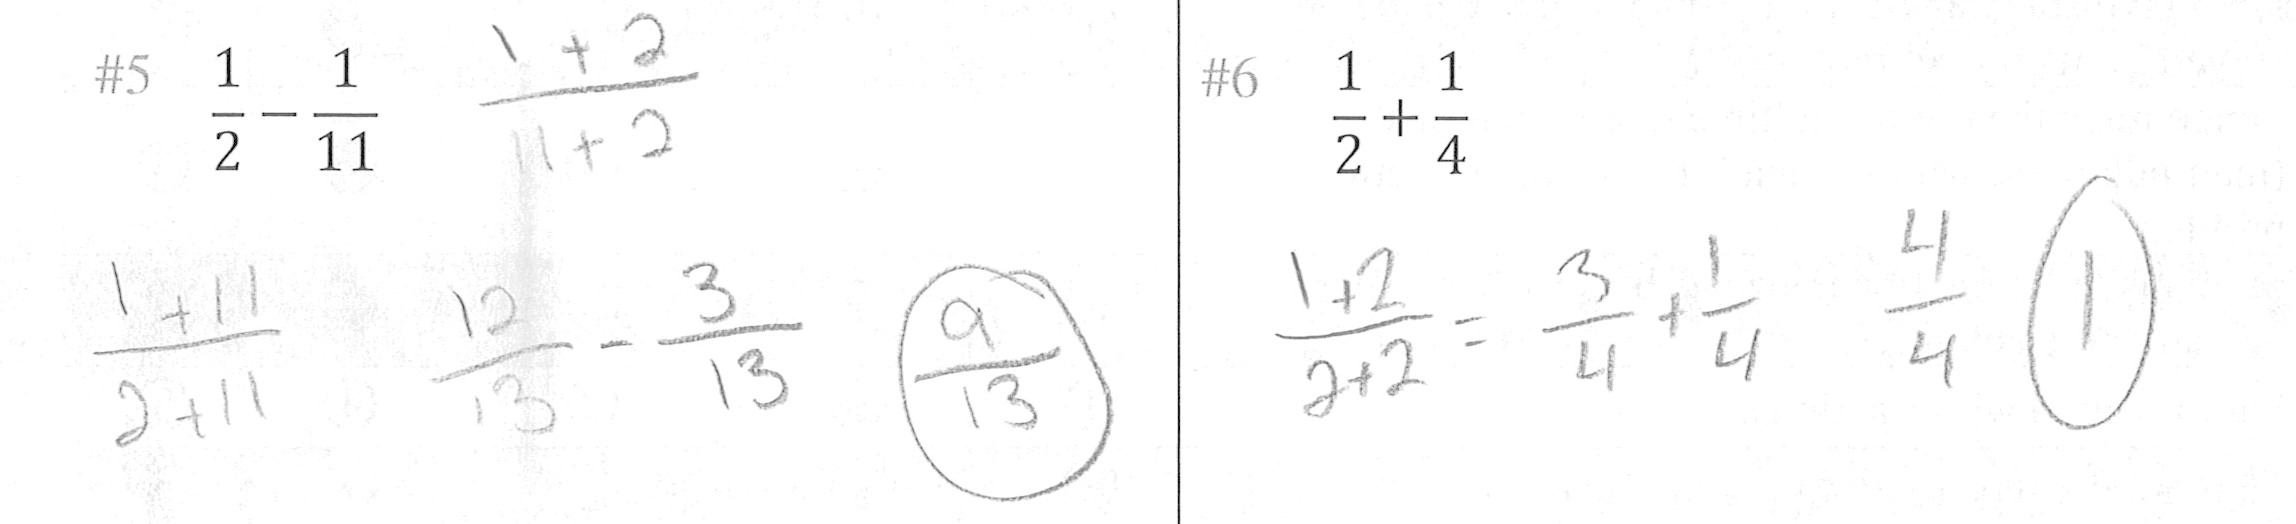 #5 1/2 − 1/11
1 + 2 / 11 + 2
1 + 11 / 2 + 11
12/13 - 3/13
9/13
#6 1/2 + 1/4
1+2 / 2+2 = 3/4 + 1/4
4/4
1